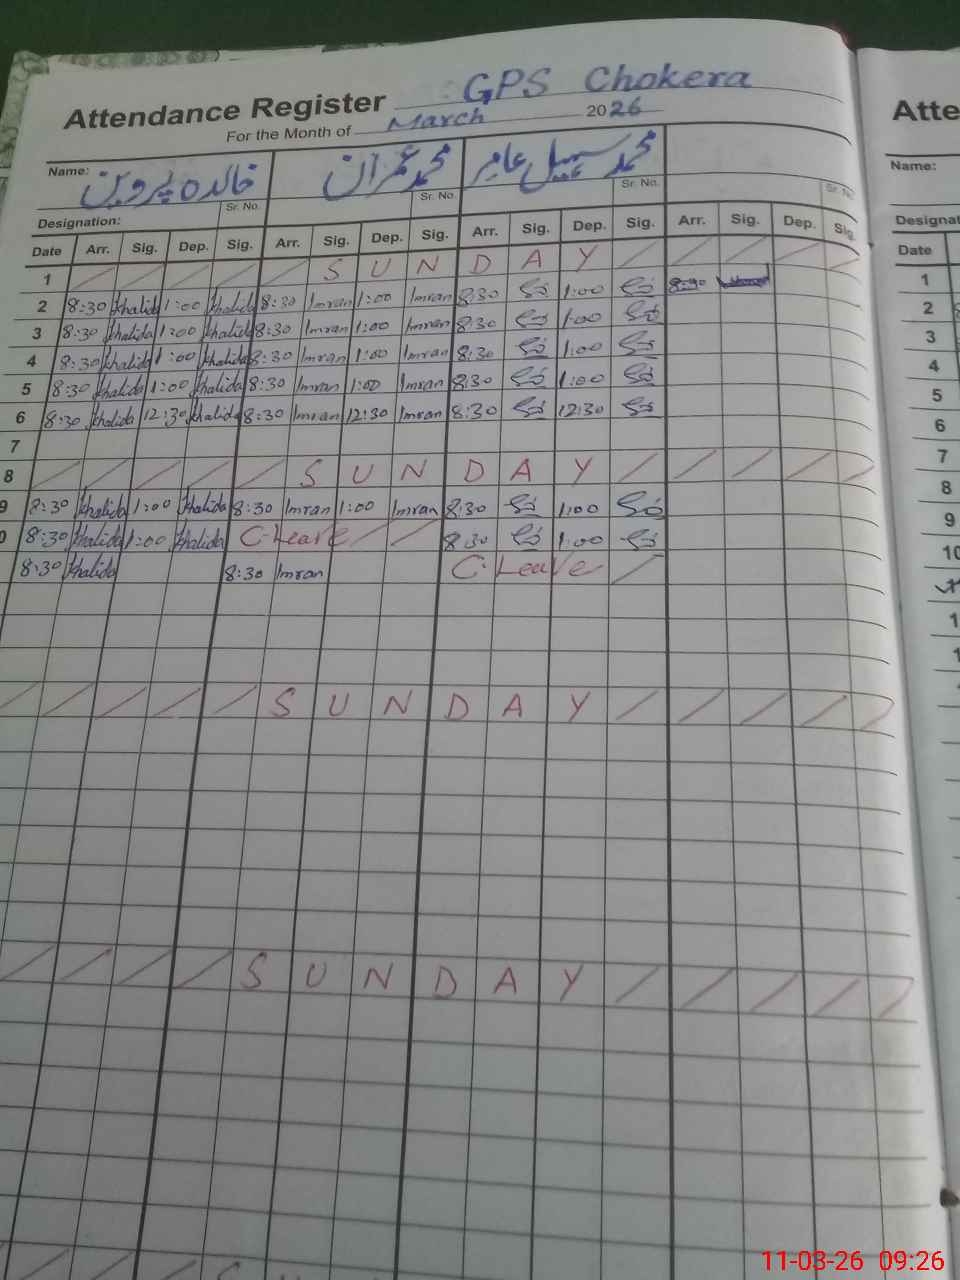 GPS Chokera
Attendance Register
For the Month of March 2026
Name: خالدہ پروین محمد عمران محمد سہیل عامر
Sr. No. Sr. No. Sr. No. Sr. No.
Designation:
Date Arr. Sig. Dep. Sig. Arr. Sig. Dep. Sig. Arr. Sig. Dep. Sig. Arr. Sig. Dep. Sig.
1 S U N D A Y
2 8:30 Khalida 1:00 Khalida 8:30 Imran 1:00 Imran 8:30 1:00 8:30
3 8:30 Khalida 1:00 Khalida 8:30 Imran 1:00 Imran 8:30 1:00
4 8:30 Khalida 1:00 Khalida 8:30 Imran 1:00 Imran 8:30 1:00
5 8:30 Khalida 1:00 Khalida 8:30 Imran 1:00 Imran 8:30 1:00
6 8:30 Khalida 12:30 Khalida 8:30 Imran 12:30 Imran 8:30 12:30
7
8 S U N D A Y
9 8:30 Khalida 1:00 Khalida 8:30 Imran 1:00 Imran 8:30 1:00
0 8:30 Khalida 1:00 Khalida C-Leave 8:30 1:00
8:30 Khalida 8:30 Imran C-Leave
S U N D A Y
S U N D A Y
S U N D A Y
Atte
Name:
Designat
Date
1
2
3
4
5
6
7
8
9
10
1
1
11-03-26 09:26